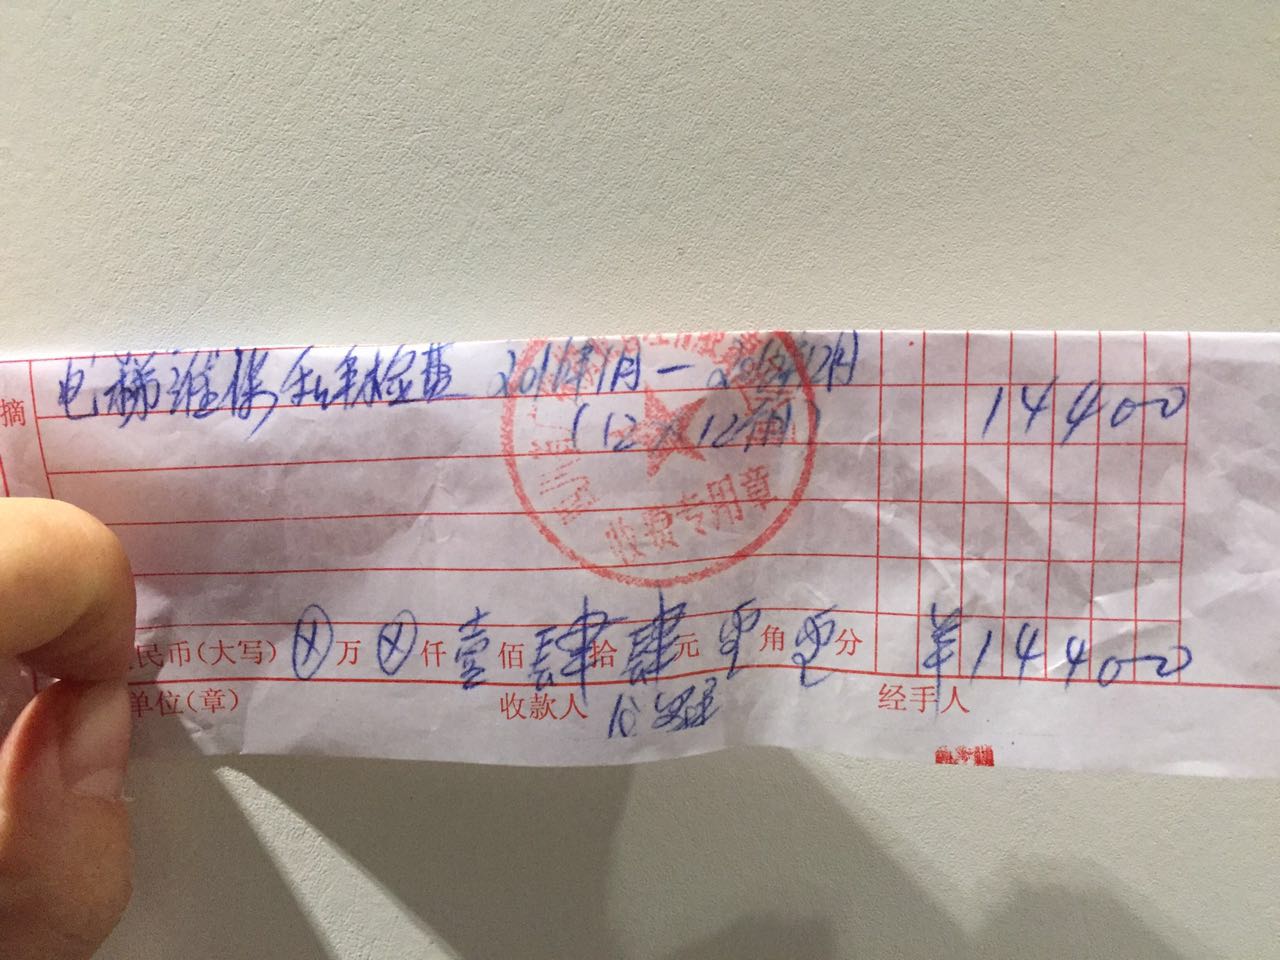 摘
电梯维保和年检费 2011年1月一2011年12月 14400
(12×12个月)
收费专用章
民币(大写)ⓧ万ⓧ仟壹佰肆拾肆元零角零分 ¥14400
单位(章) 收款人 经手人